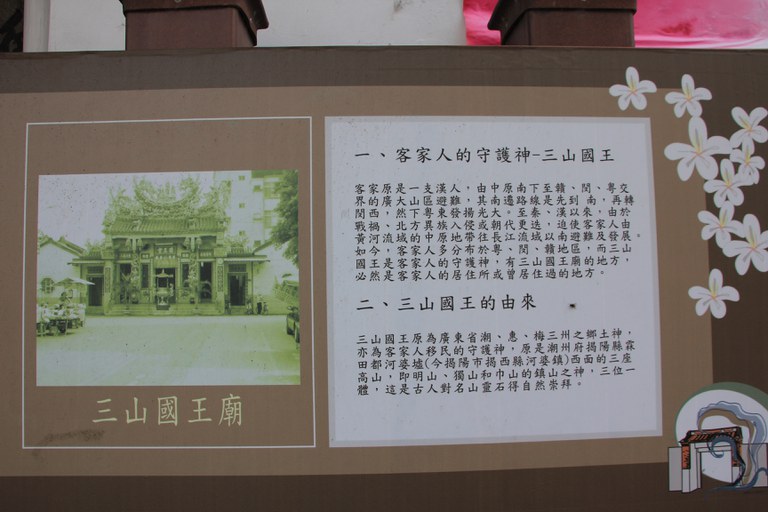 三山國王廟
一、客家人的守護神-三山國王
客家原是一支漢人，由中原南下至贛、閩、粵交
界的廣大山區避難，其南遷路線是先到 南，再轉
閩西，然下粵東發揚光大。至秦、漢以來，由於
戰禍、北方異族入侵或朝代更迭，迫使客家人由
黃河流域的中原地帶往長江流域以南避難及發展。
如今，客家人多分布於粵、閩、贛地區，而三山
國王是客家人的守護神，有三山國王廟的地方，
必然是客家人的居住所或曾居住過的地方。
二、三山國王的由來
三山國王原為廣東省潮、惠、梅三州之鄉土神，
亦為客家人移民的守護神，原是潮州府揭陽縣霖
田都河婆墟(今揭陽市揭西縣河婆鎮)西面的三座
高山，即明山、獨山和巾山的鎮山之神，三位一
體，這是古人對名山靈石得自然崇拜。